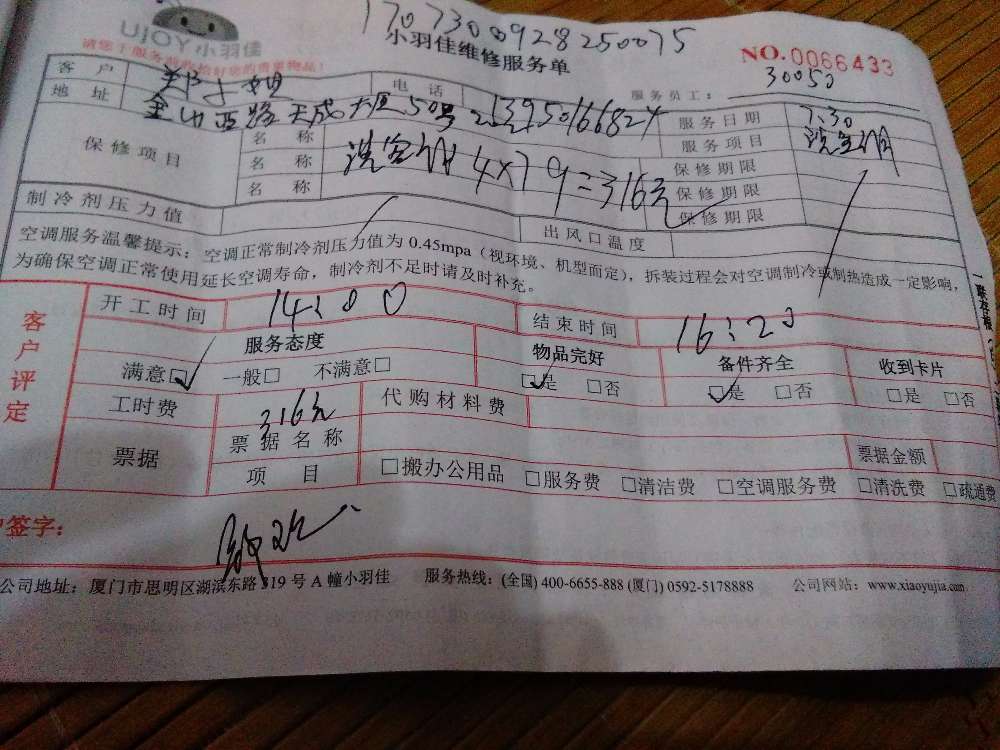 1707300928250075
UJOY小羽佳
小羽佳维修服务单
NO.0066433
请您于服务前收拾好您的贵重物品!
客 户 郑小姐 电 话 服务员工: 30050
地 址 金山西路天成大厦50号 13950166824 服务日期 7.30
保修项目 名 称 洗空调 4×79=316元 服务项目 洗空调
名 称 保修期限
名 称 保修期限
保修期限
制冷剂压力值 出风口温度
空调服务温馨提示:空调正常制冷剂压力值为 0.45mpa(视环境、机型而定),拆装过程会对空调制冷或制热造成一定影响,
为确保空调正常使用延长空调寿命,制冷剂不足时请及时补充。
客户评定
开工时间 14:00 结束时间 16:20
服务态度 物品完好 备件齐全 收到卡片
满意□ 一般□ 不满意□ □是 □否 □是 □否 □是 □否
工时费 316元 代购材料费
票据 票据名称 票据金额
项 目 □搬办公用品 □服务费 □清洁费 □空调服务费 □清洗费 □疏通费
签字:
公司地址:厦门市思明区湖滨东路 319 号 A 幢小羽佳 服务热线:(全国) 400-6655-888 (厦门) 0592-5178888 公司网站:www.xiaoyujia.com